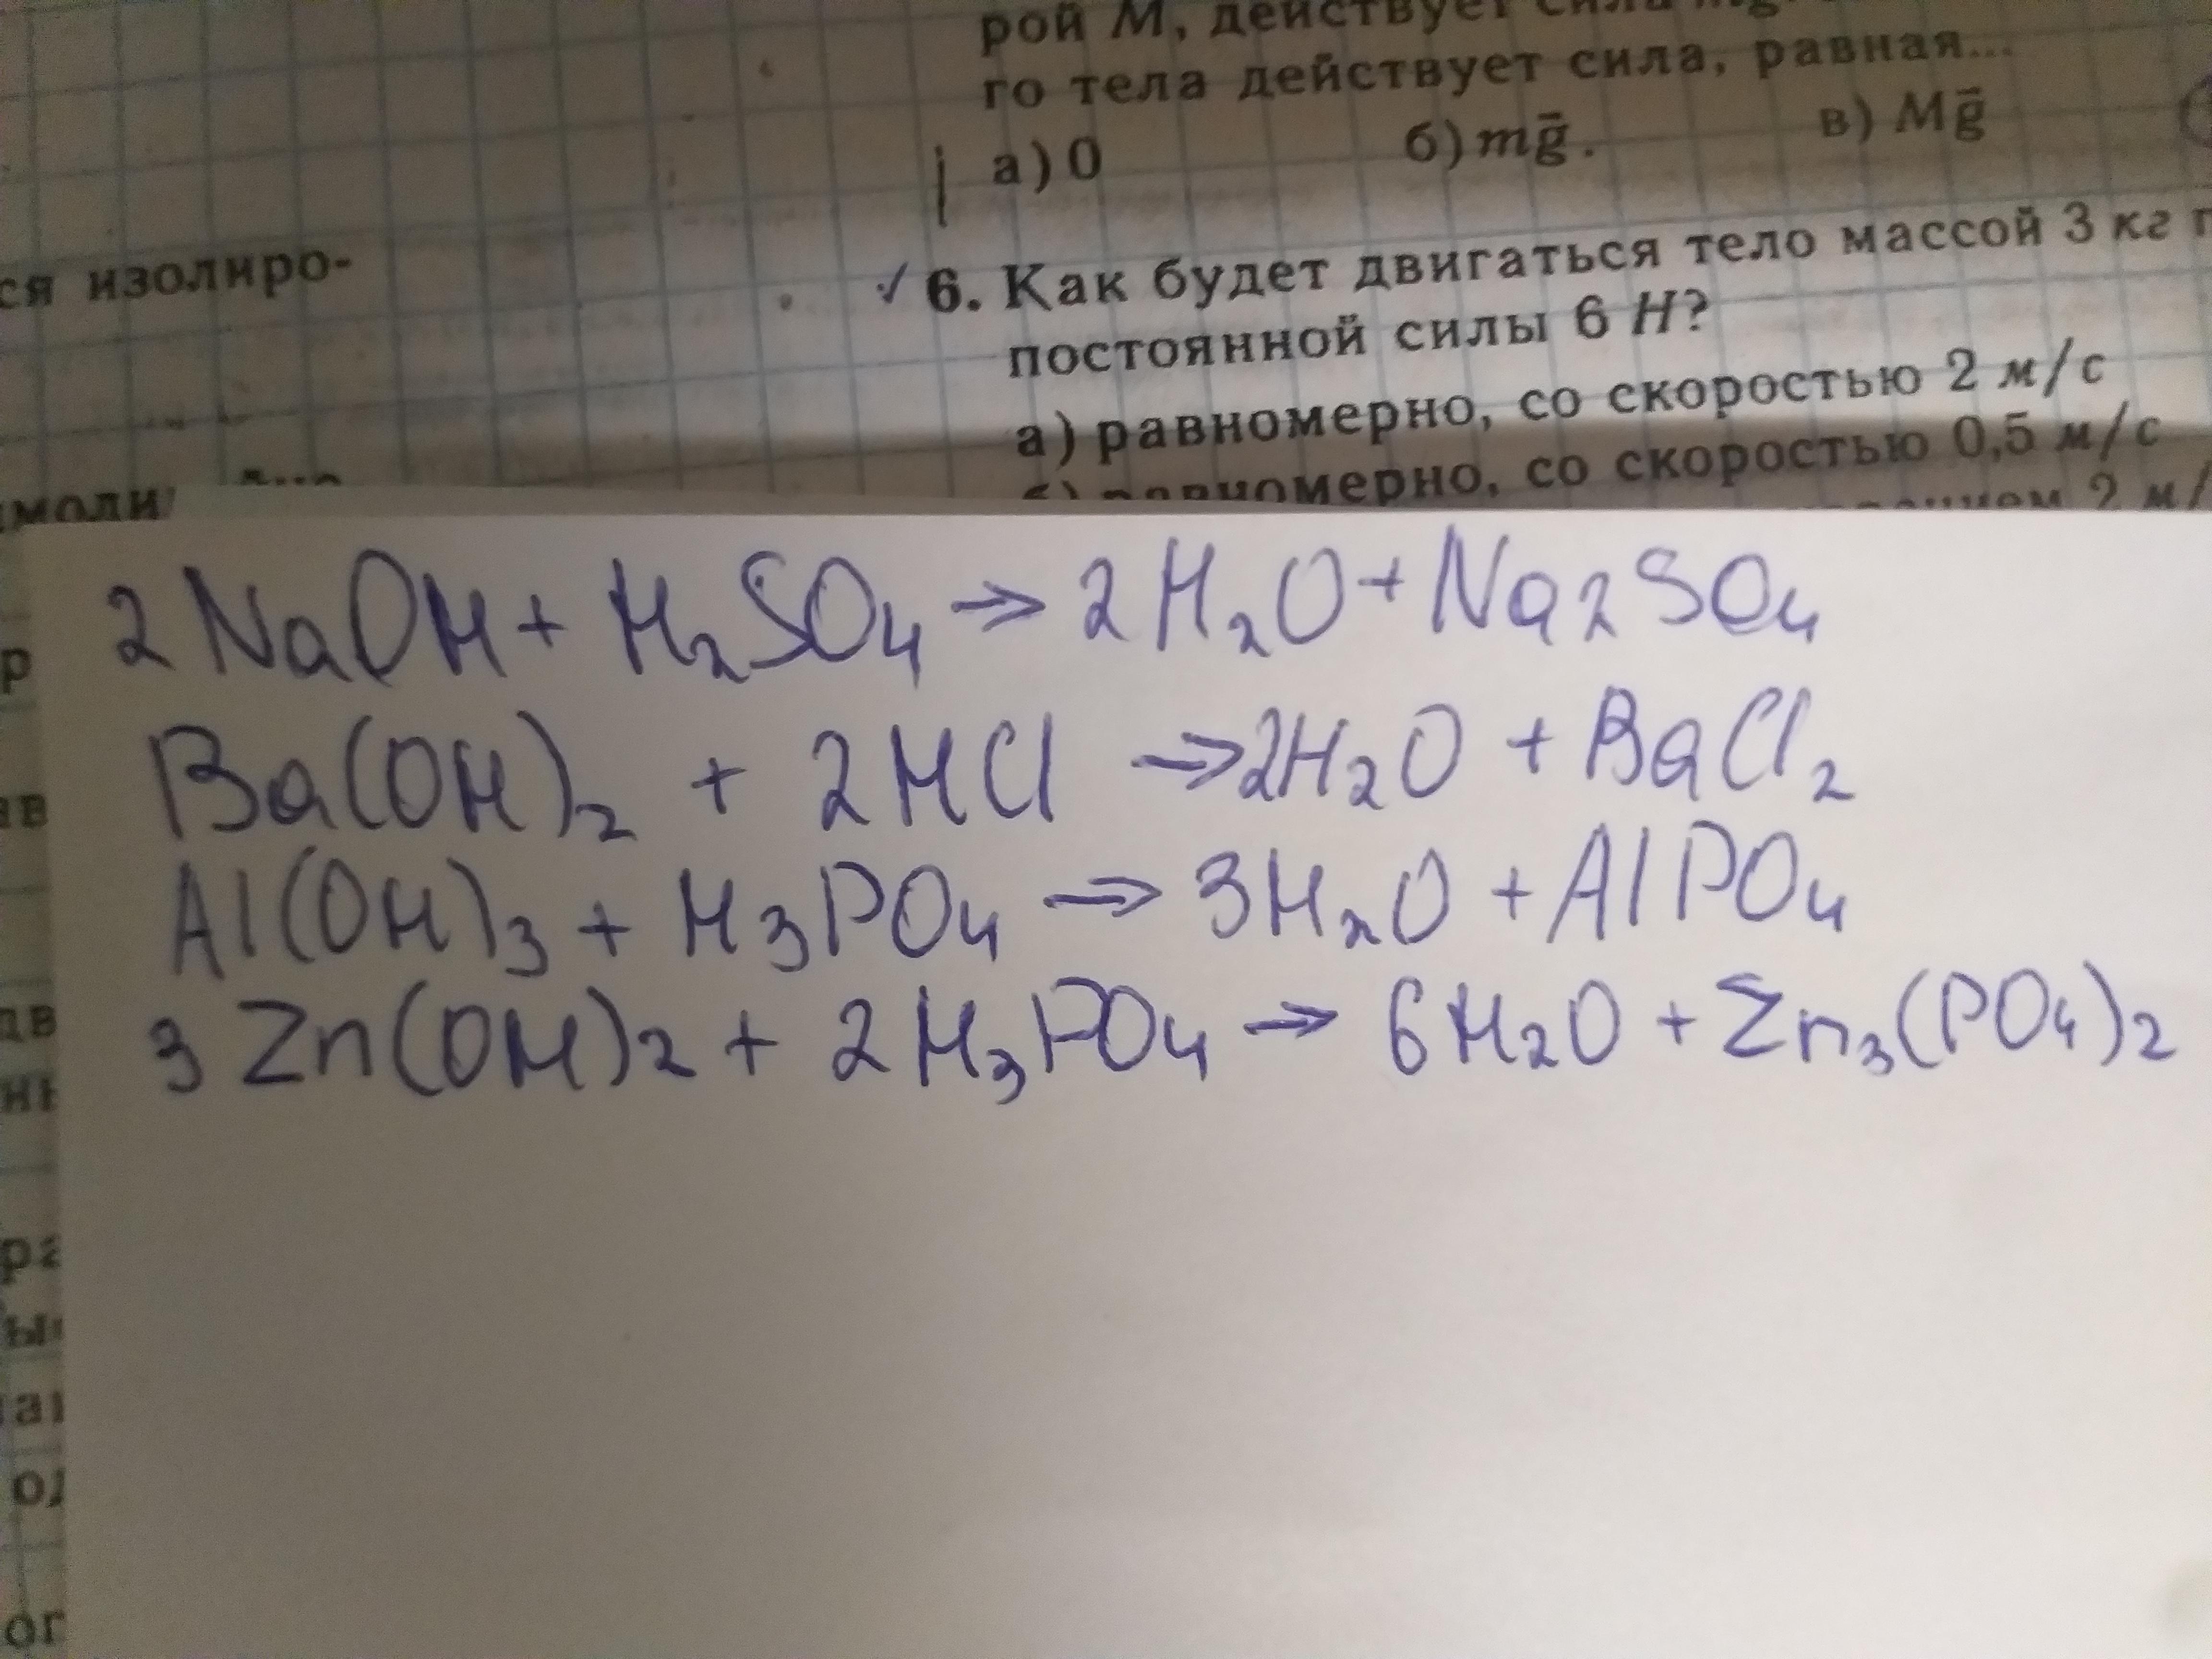 рой М, действует сила
го тела действует сила, равная...
а) 0 б) mg̅. в) Mg̅
ся изолиро-
✓ 6. Как будет двигаться тело массой 3 кг
постоянной силы 6 Н?
а) равномерно, со скоростью 2 м/с
б) равномерно, со скоростью 0,5 м/с
2 м/
2NaOH + H₂SO₄ → 2H₂O + Na₂SO₄
Ba(OH)₂ + 2HCl → 2H₂O + BaCl₂
Al(OH)₃ + H₃PO₄ → 3H₂O + AlPO₄
3Zn(OH)₂ + 2H₃PO₄ → 6H₂O + Zn₃(PO₄)₂